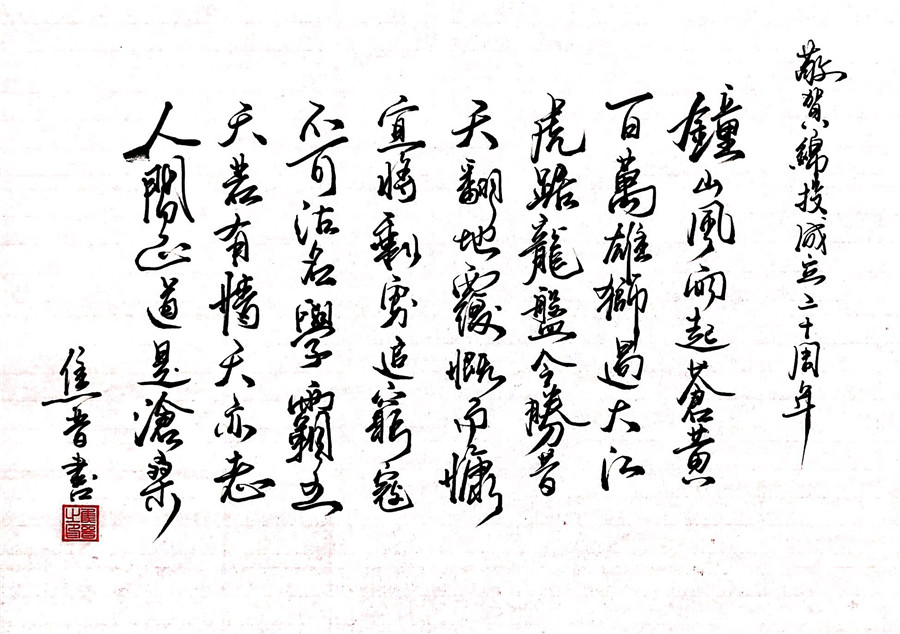 敬賀綿投成立二十周年
鐘山風雨起蒼黃
百萬雄獅過大江
虎踞龍盤今勝昔
天翻地覆慨而慷
宜將剩勇追窮寇
不可沽名學霸王
天若有情天亦老
人間正道是滄桑
焦晋書